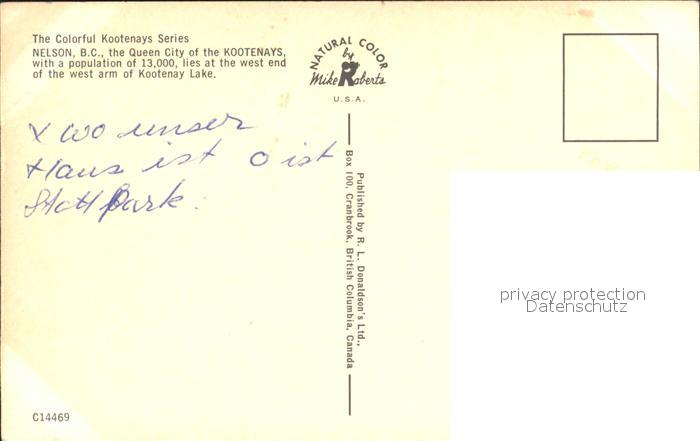 The Colorful Kootenays Series
NELSON, B.C., the Queen City of the KOOTENAYS,
with a population of 13,000, lies at the west end
of the west arm of Kootenay Lake.
X wo unser
Haus ist O ist
Statt Park.
NATURAL COLOR
by
Mike Roberts
U.S.A.
Published by R. L. Donaldson's Ltd.,
Box 100, Cranbrook, British Columbia, Canada
privacy protection
Datenschutz
C14469